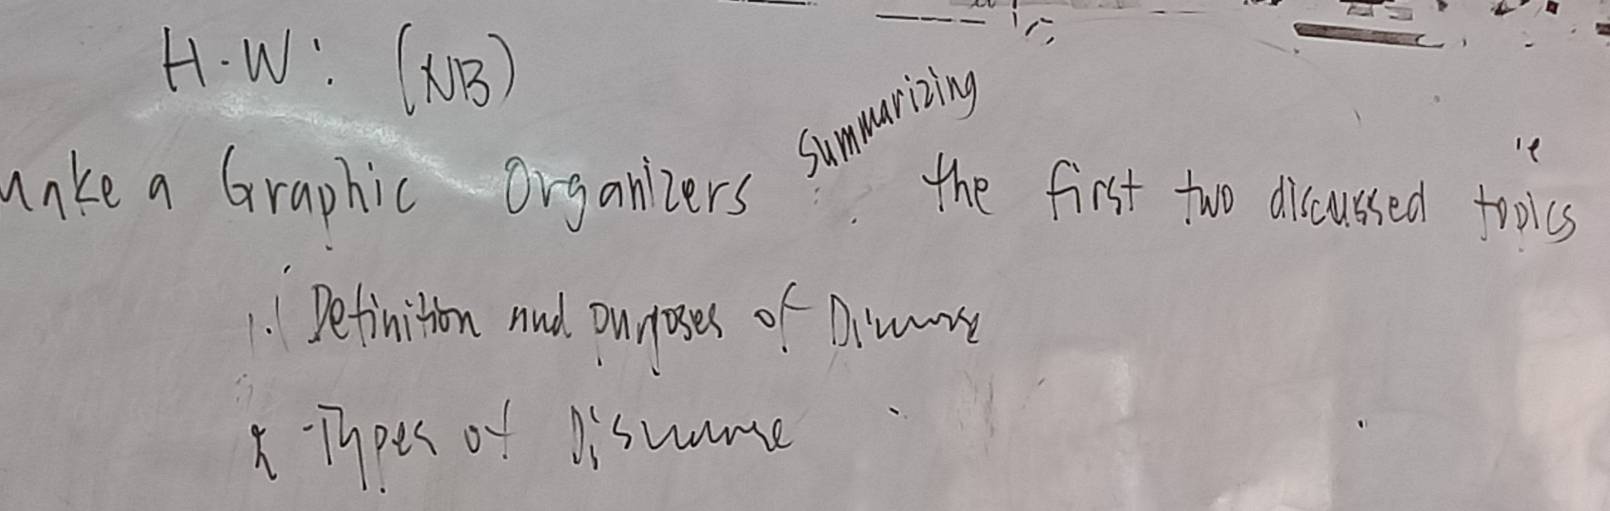 H.W: (NB)
Make a Graphic Organizers summarizing the first two discussed topics ie
1. Definition and purposes of Discourse
2 Types of Discourse